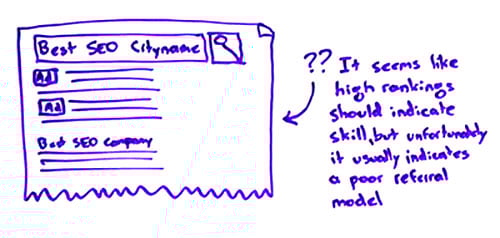 Best SEO Cityname
Ad
Ad
Best SEO company
?? It seems like
high rankings
should indicate
skill, but unfortunately
it usually indicates
a poor referral
model